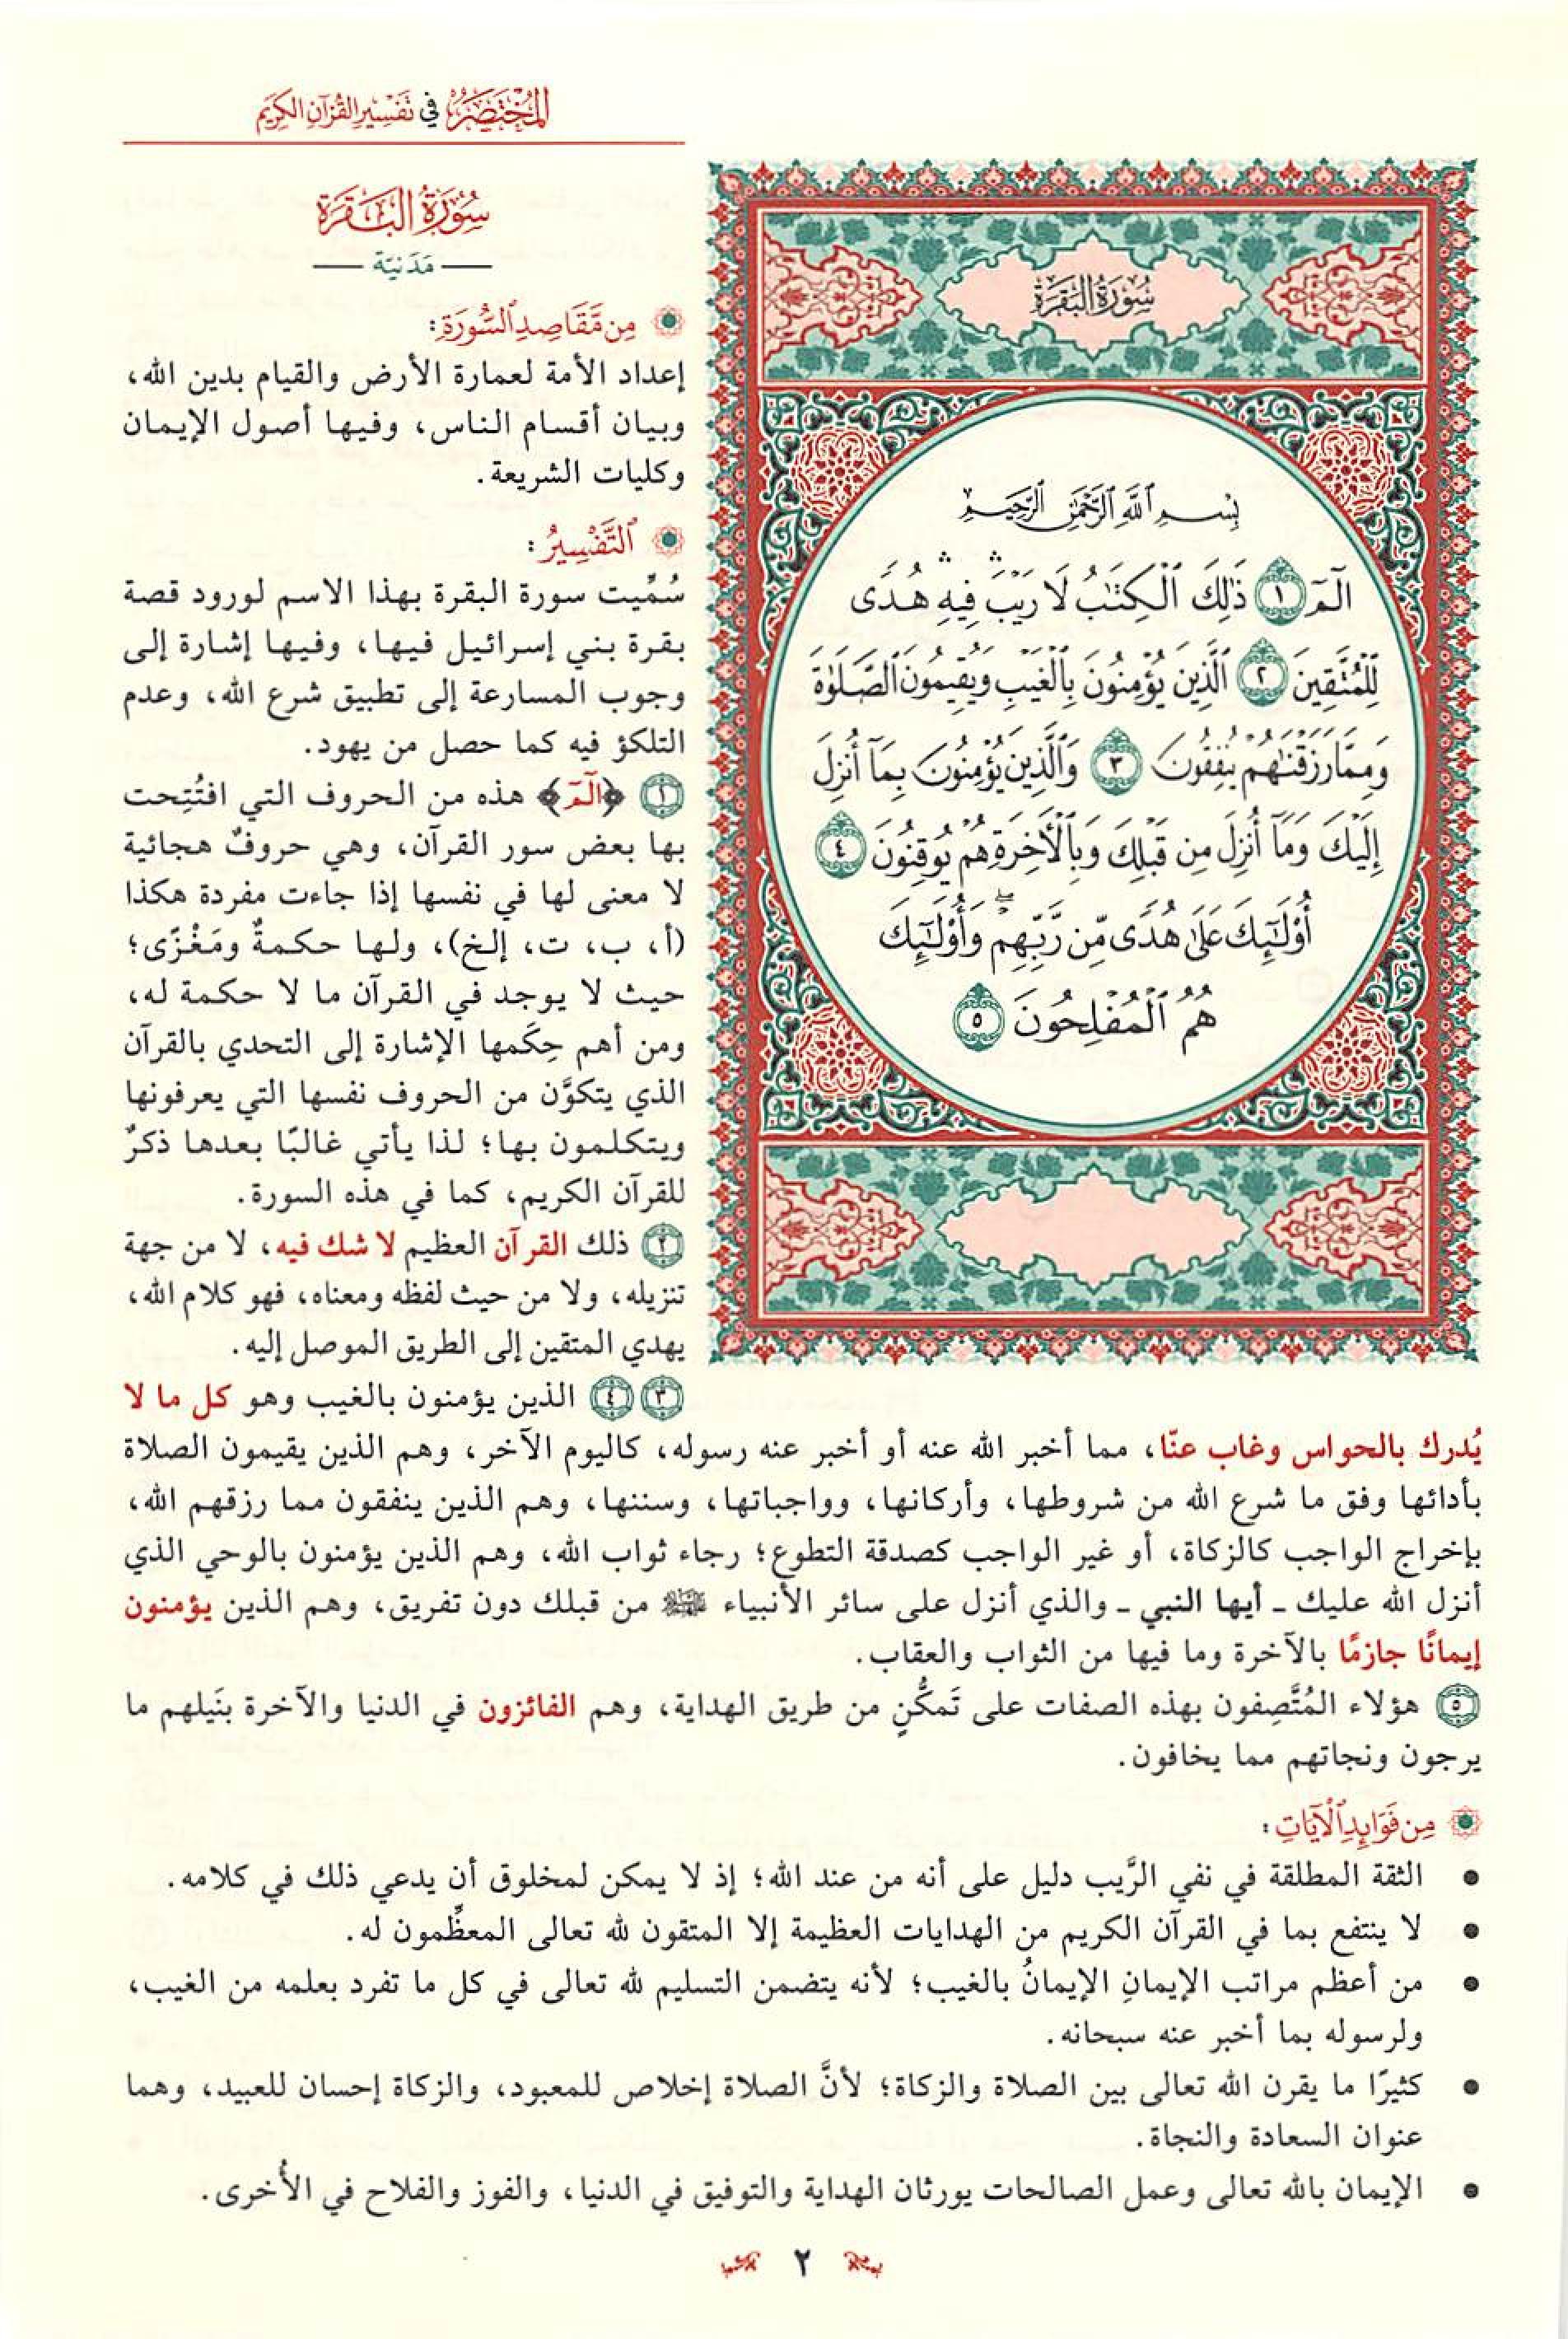 المختصر في تفسير القرآن الكريم
سورة البقرة
بِسۡمِ ٱللَّهِ ٱلرَّحۡمَٰنِ ٱلرَّحِيمِ
الٓمٓ ١ ذَٰلِكَ ٱلۡكِتَٰبُ لَا رَيۡبَۛ فِيهِۛ هُدٗى
لِّلۡمُتَّقِينَ ٢ ٱلَّذِينَ يُؤۡمِنُونَ بِٱلۡغَيۡبِ وَيُقِيمُونَ ٱلصَّلَوٰةَ
وَمِمَّا رَزَقۡنَٰهُمۡ يُنفِقُونَ ٣ وَٱلَّذِينَ يُؤۡمِنُونَ بِمَآ أُنزِلَ
إِلَيۡكَ وَمَآ أُنزِلَ مِن قَبۡلِكَ وَبِٱلۡأٓخِرَةِ هُمۡ يُوقِنُونَ ٤
أُوْلَٰٓئِكَ عَلَىٰ هُدٗى مِّن رَّبِّهِمۡۖ وَأُوْلَٰٓئِكَ
هُمُ ٱلۡمُفۡلِحُونَ ٥
سورة البقرة
مَدَنيّة
مِن مَّقَاصِدِ ٱلسُّورَةِ:
إعداد الأمة لعمارة الأرض والقيام بدين الله،
وبيان أقسام الناس، وفيها أصول الإيمان
وكليات الشريعة.
ٱلتَّفْسِيرُ:
سُمِّيت سورة البقرة بهذا الاسم لورود قصة
بقرة بني إسرائيل فيها، وفيها إشارة إلى
وجوب المسارعة إلى تطبيق شرع الله، وعدم
التلكؤ فيه كما حصل من يهود.
١ ﴿الٓمٓ﴾ هذه من الحروف التي افتُتِحت
بها بعض سور القرآن، وهي حروفٌ هجائية
لا معنى لها في نفسها إذا جاءت مفردة هكذا
(أ، ب، ت، إلخ)، ولها حكمةٌ ومَغْزًى؛
حيث لا يوجد في القرآن ما لا حكمة له،
ومن أهم حِكَمها الإشارة إلى التحدي بالقرآن
الذي يتكوَّن من الحروف نفسها التي يعرفونها
ويتكلمون بها؛ لذا يأتي غالبًا بعدها ذكرٌ
للقرآن الكريم، كما في هذه السورة.
٢ ذلك القرآن العظيم لا شك فيه، لا من جهة
تنزيله، ولا من حيث لفظه ومعناه، فهو كلام الله،
يهدي المتقين إلى الطريق الموصل إليه.
٣ ٤ الذين يؤمنون بالغيب وهو كل ما لا
يُدرك بالحواس وغاب عنّا، مما أخبر الله عنه أو أخبر عنه رسوله، كاليوم الآخر، وهم الذين يقيمون الصلاة
بأدائها وفق ما شرع الله من شروطها، وأركانها، وواجباتها، وسننها، وهم الذين ينفقون مما رزقهم الله،
بإخراج الواجب كالزكاة، أو غير الواجب كصدقة التطوع؛ رجاء ثواب الله، وهم الذين يؤمنون بالوحي الذي
أنزل الله عليك ـ أيها النبي ـ والذي أنزل على سائر الأنبياء من قبلك دون تفريق، وهم الذين يؤمنون
إيمانًا جازمًا بالآخرة وما فيها من الثواب والعقاب.
٥ هؤلاء المُتَّصِفون بهذه الصفات على تَمكُّنٍ من طريق الهداية، وهم الفائزون في الدنيا والآخرة بنَيلهم ما
يرجون ونجاتهم مما يخافون.
مِن فَوَائِدِ ٱلْآيَاتِ:
• الثقة المطلقة في نفي الرَّيب دليل على أنه من عند الله؛ إذ لا يمكن لمخلوق أن يدعي ذلك في كلامه.
• لا ينتفع بما في القرآن الكريم من الهدايات العظيمة إلا المتقون لله تعالى المعظِّمون له.
• من أعظم مراتب الإيمانِ الإيمانُ بالغيب؛ لأنه يتضمن التسليم لله تعالى في كل ما تفرد بعلمه من الغيب،
ولرسوله بما أخبر عنه سبحانه.
• كثيرًا ما يقرن الله تعالى بين الصلاة والزكاة؛ لأنَّ الصلاة إخلاص للمعبود، والزكاة إحسان للعبيد، وهما
عنوان السعادة والنجاة.
• الإيمان بالله تعالى وعمل الصالحات يورثان الهداية والتوفيق في الدنيا، والفوز والفلاح في الأُخرى.
٢